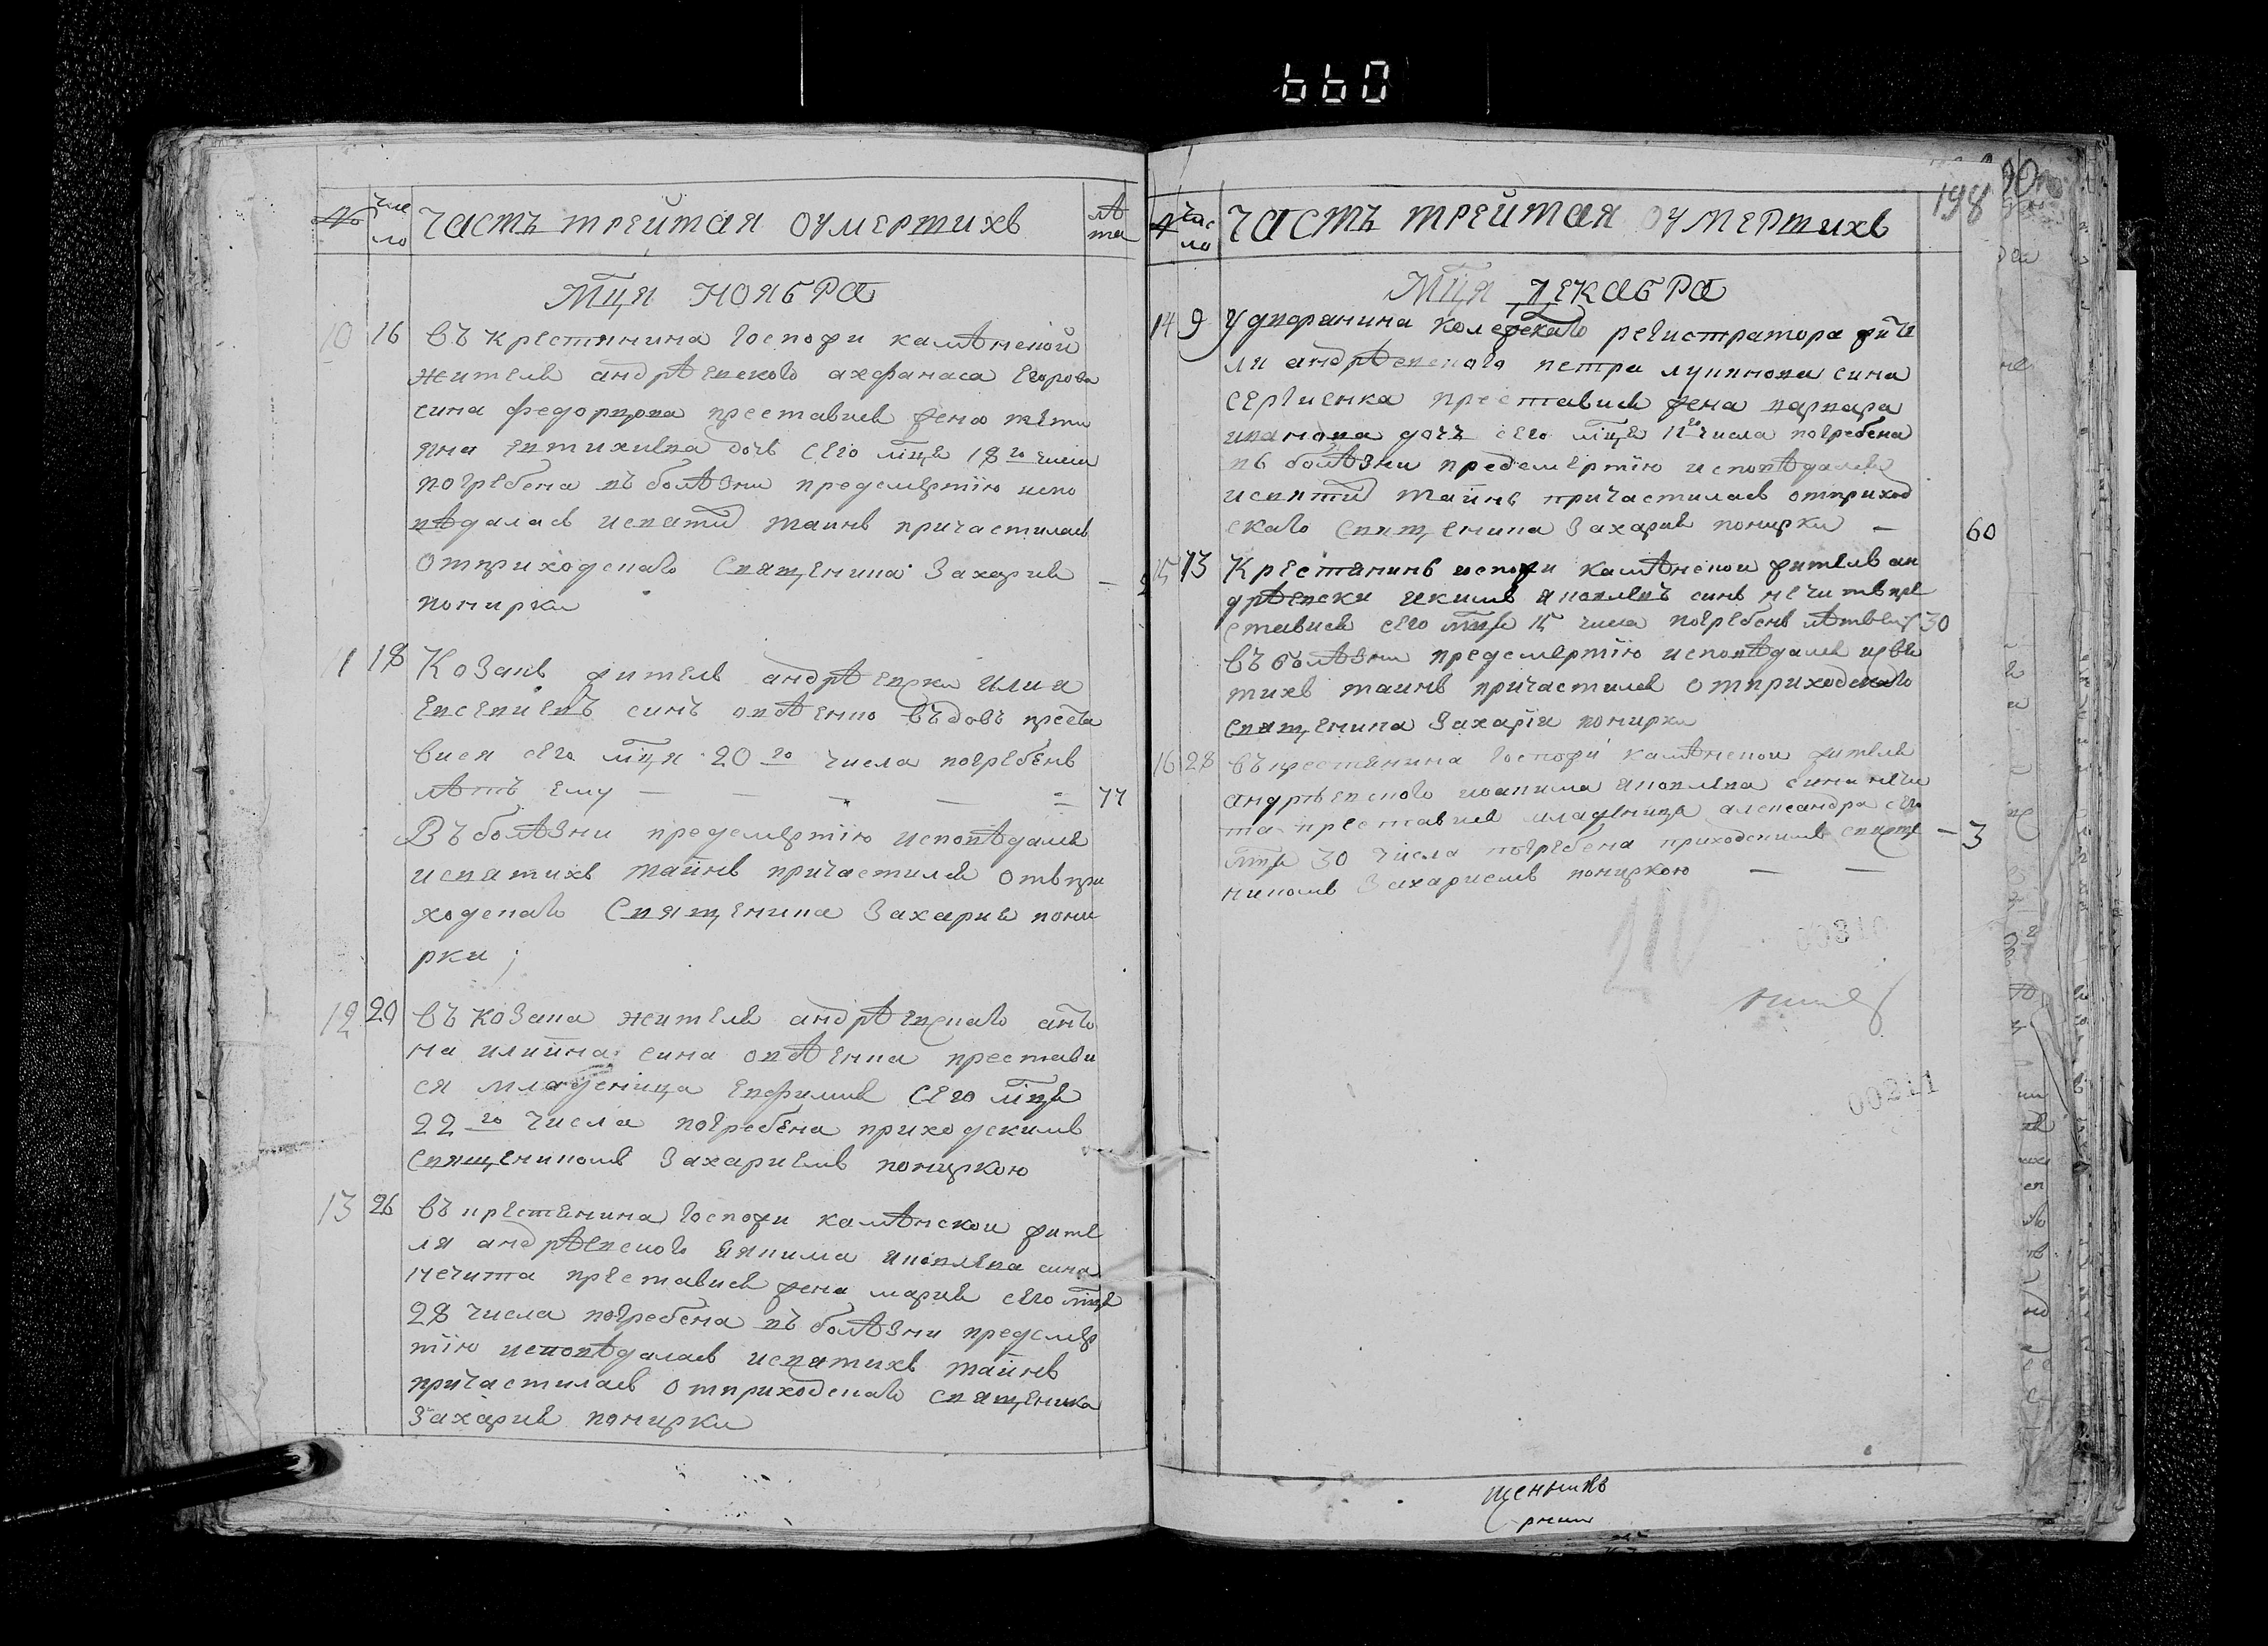 660
198
№ число Часть трейтая оумертихъ лѣта
Мця Ноябра
10 16 въ крестянина госпожи камѣнской
жителя андрѣевского ахфанаса Егорова
сина федорцова преставися жена тети
яна Евтихиева дочь сего мця 18го числа
погребена въ болѣзни предсмертію испо
вѣдалась исвятих таинъ причастилась
отприходскаго Священика Захарія —
понирки
11 18 Козакъ житель андрѣевски илия
Евсевиевъ синъ овѣенко въдовъ преста
вися сего мця 20го числа погребенъ
лѣтъ ему — — — — = 77
Въ болѣзни предсмертію исповѣдался
исвятихъ тайнъ причастился отъпри
ходскаго Священика Захария пони
рки ;
12 20 въ козака жителя андрѣевскаго анто
на илиина сина овѣенка престави
ся младеница Евфимия сего мця
22го числа погребена приходскимъ
священикомъ Захариемъ пониркою
13 26 въ крестянина госпожи камѣнской жите
ля андрѣевского якима яковлева сина
нечита преставися жена мария сего мця
28 числа погребена въ болѣзни предсмер
тію исповѣдалась исвятихъ тайнъ
причастилась отприходскаго священика
Захария понирки
№ число Часть трейтая оумертихъ
Мця Декабра
14 9 У дворанина колежскаго регистратора жите
ля андрѣевского петра лукинова сина
сергиенка преставися жена варвара
иванова дочь сего мця числа погребена
въ болѣзни предсмертію исповѣдалась
исвятих тайнъ причастилась отприход
скаго священика Захария понирки — 60
15 13 Крестянинъ госпожи камѣнской житель ан
дрѣевски якимъ яковлевъ синъ нечитъ пре
ставися сего мця 15 числа погребенъ лѣтъ ему 30
въ болѣзни предсмертію исповѣдался исвя
тихъ таинъ причастился отприходскаго
священика Захарія понирки
16 28 въ крестянина госпожи камѣнской жителя
андрѣевского иоакима яковлева сина нечи
та преставися младеница александра сего
мця 30 числа погребена приходскимъ свяще — 3
никомъ Захариемъ пониркою — —
00810
00811
щенникъ